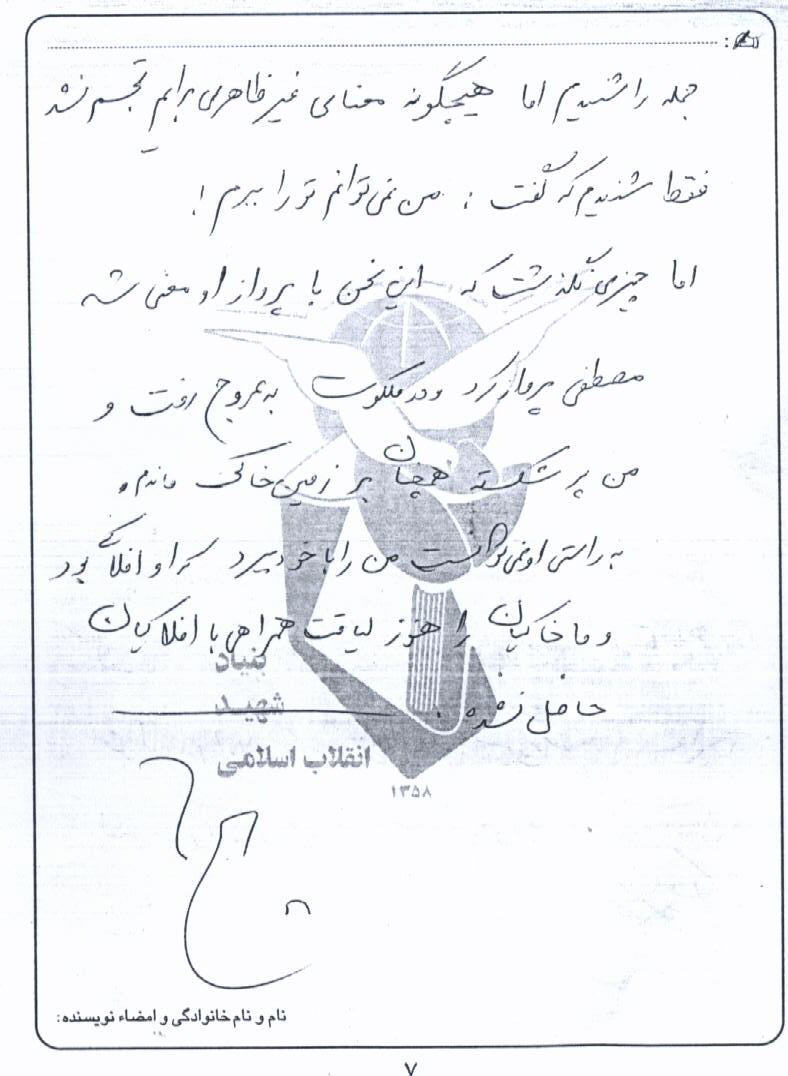 جمله را شنیدم اما هیچگونه معنای غیر ظاهری برایم تجسم نشد
فقط شنیدم که گفت : من نمی‌توانم تو را ببرم !
اما چیزی نگذشت که این سخن با پرواز او معنی شد
مصطفی پرواز کرد و در ملکوت به عروج رفت و
من پر شکسته همچنان بر زمین خاکی ماندم و
به راستی او نمی‌توانست من را با خود ببرد که او افلاکی بود
و ما خاکیان را هنوز لیاقت همراهی با افلاکیان
حاصل نشده .
بنیاد
شهید
انقلاب اسلامی
۱۳۵۸
نام و نام خانوادگی و امضاء نویسنده:
۷